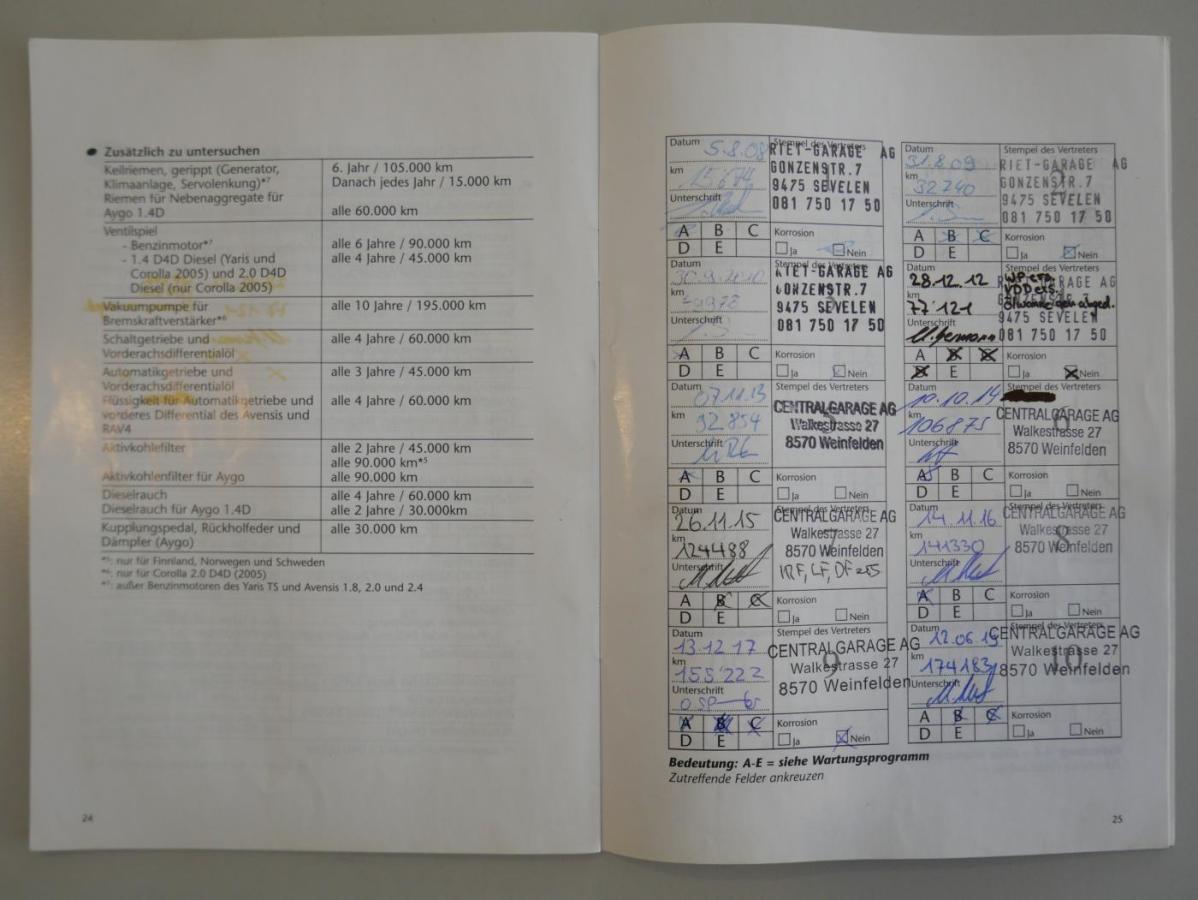 Zusätzlich zu untersuchen
Keilriemen, gerippt (Generator, 6. Jahr / 105.000 km
Klimaanlage, Servolenkung)*⁷ Danach jedes Jahr / 15.000 km
Riemen für Nebenaggregate für
Aygo 1.4D alle 60.000 km
Ventilspiel
- Benzinmotor*⁷ alle 6 Jahre / 90.000 km
- 1.4 D4D Diesel (Yaris und alle 4 Jahre / 45.000 km
Corolla 2005) und 2.0 D4D
Diesel (nur Corolla 2005)
Vakuumpumpe für alle 10 Jahre / 195.000 km
Bremskraftverstärker*⁶
Schaltgetriebe und alle 4 Jahre / 60.000 km
Vorderachsdifferentialöl
Automatikgetriebe und alle 3 Jahre / 45.000 km
Vorderachsdifferentialöl
Flüssigkeit für Automatikgetriebe und alle 4 Jahre / 60.000 km
vorderes Differential des Avensis und
RAV4
Aktivkohlefilter alle 2 Jahre / 45.000 km
alle 90.000 km*⁵
Aktivkohlenfilter für Aygo alle 90.000 km
Dieselrauch alle 4 Jahre / 60.000 km
Dieselrauch für Aygo 1.4D alle 2 Jahre / 30.000km
Kupplungspedal, Rückholfeder und alle 30.000 km
Dämpfer (Aygo)
*⁵: nur für Finnland, Norwegen und Schweden
*⁶: nur für Corolla 2.0 D4D (2005)
*⁷: außer Benzinmotoren des Yaris TS und Avensis 1.8, 2.0 und 2.4
24
Datum 5.8.08 Stempel des Vertreters
RIET-GARAGE AG
km 15'674 GONZENSTR.7
9475 SEVELEN
Unterschrift 081 750 17 50
A B C Korrosion
D E Ja Nein
Datum 31.8.09 Stempel des Vertreters
RIET-GARAGE AG
km 32'740 GONZENSTR.7
2
Unterschrift 9475 SEVELEN
081 750 17 50
A B C Korrosion
D E Ja Nein
Datum Stempel des Vertreters
RIET-GARAGE AG
km GONZENSTR.7
3
9475 SEVELEN
Unterschrift 081 750 17 50
A B C Korrosion
D E Ja Nein
Datum 28.12.12 Stempel des Vertreters
WP ers.
VDD ers.
km 77'121
9475 SEVELEN
Unterschrift 081 750 17 50
A B C Korrosion
D E Ja Nein
Datum 07.11.13 Stempel des Vertreters
CENTRALGARAGE AG
km 92'854 Walkestrasse 27
Unterschrift 8570 Weinfelden
A B C Korrosion
D E Ja Nein
Datum 10.10.14 Stempel des Vertreters
CENTRALGARAGE AG
km 106875 Walkestrasse 27
6
Unterschrift 8570 Weinfelden
A B C Korrosion
D E Ja Nein
Datum 26.11.15 Stempel des Vertreters
CENTRALGARAGE AG
Walkestrasse 27
7
km 124488 8570 Weinfelden
Unterschrift IRF, LF, DF
A B C Korrosion
D E Ja Nein
Datum 14.11.16 Stempel des Vertreters
CENTRALGARAGE AG
Walkestrasse 27
8
km 141330 8570 Weinfelden
Unterschrift
A B C Korrosion
D E Ja Nein
Datum 13.12.17 Stempel des Vertreters
CENTRALGARAGE AG
km 155'222 Walkestrasse 27
9
Unterschrift 8570 Weinfelden
A B C Korrosion
D E Ja Nein
Datum 12.06.19 Stempel des Vertreters
CENTRALGARAGE AG
Walkestrasse 27
10
km 174183 8570 Weinfelden
Unterschrift
A B C Korrosion
D E Ja Nein
Bedeutung: A-E = siehe Wartungsprogramm
Zutreffende Felder ankreuzen
25